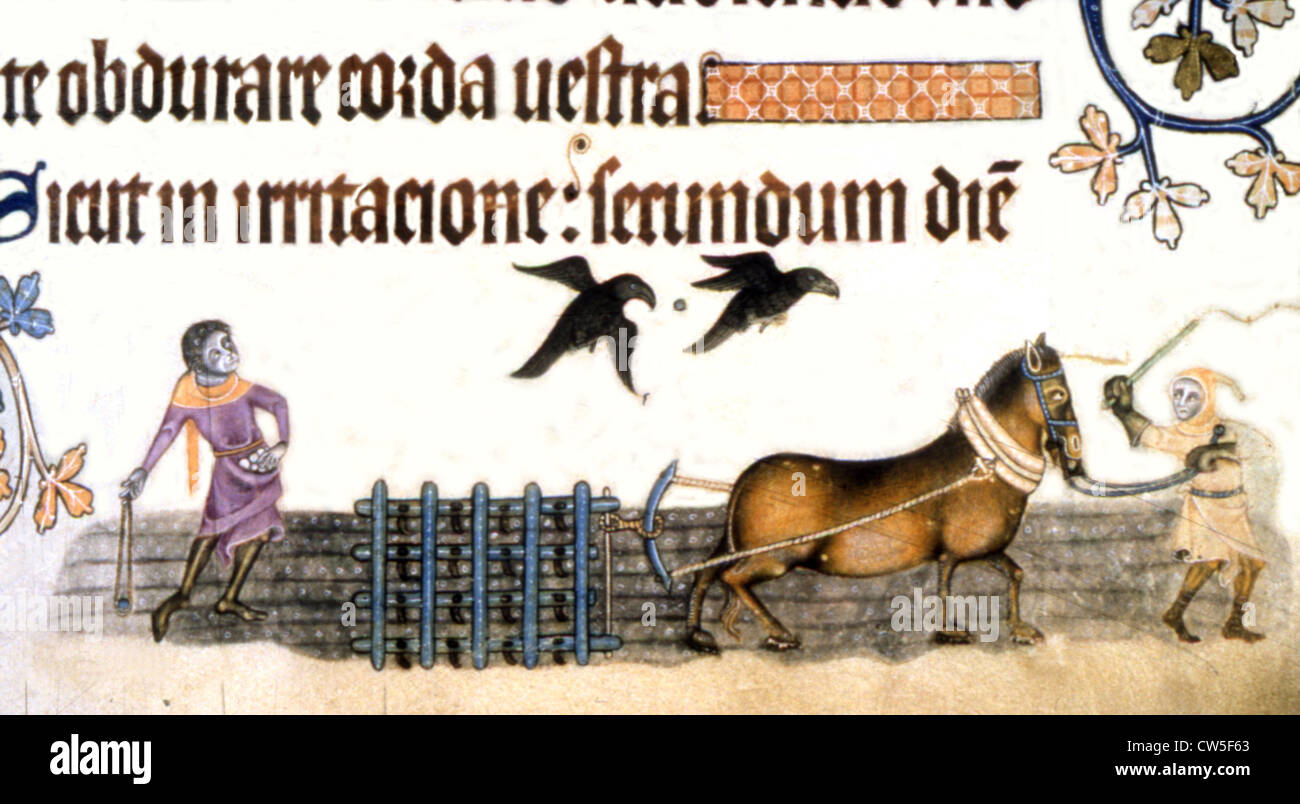 te obdurare corda uestra
Sicut in irritacione: secundum diē
a
alamy
a
alamy
a
alamy
alamy
Image ID: CW5F63
www.alamy.com